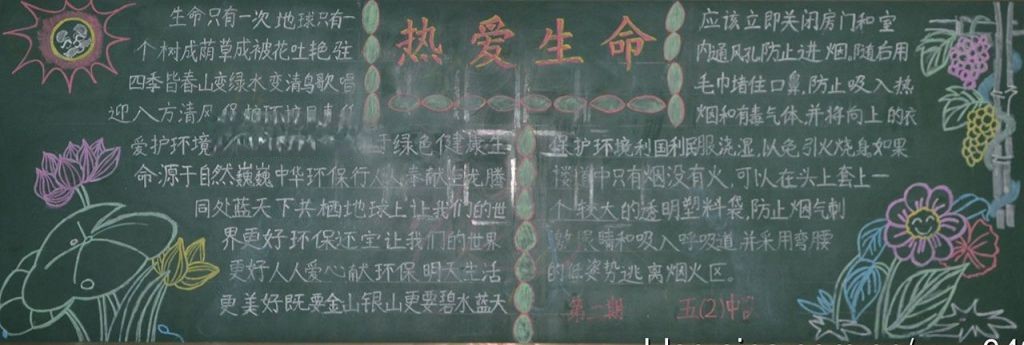 热爱生命
生命只有一次 地球只有一
个 树成荫草成被花吐艳 驻
四季皆春山变绿水变清鸟歌唱
迎入方清风
爱护环境 于绿色健康生
命 源于自然巍巍中华环保行 人人奉献 优胜
同处蓝天下共栖地球上让我们的世
界更好环保还宝让我们的世界
更好人人爱心献环保明天生活
更美好既要金山银山更要碧水蓝天
应该立即关闭房门和室
内通风孔防止进烟。随后用
毛巾堵住口鼻,防止吸入热
烟和有毒气体,并将向上的衣
保护环境利国利民服浇湿,以免引火烧身如果
楼道中只有烟没有火,可以在头上套上一
个较大的透明塑料袋,防止烟气刺
眼睛和吸入呼吸道并采用弯腰
的低姿势逃离烟火区。
第二期 五(2)中